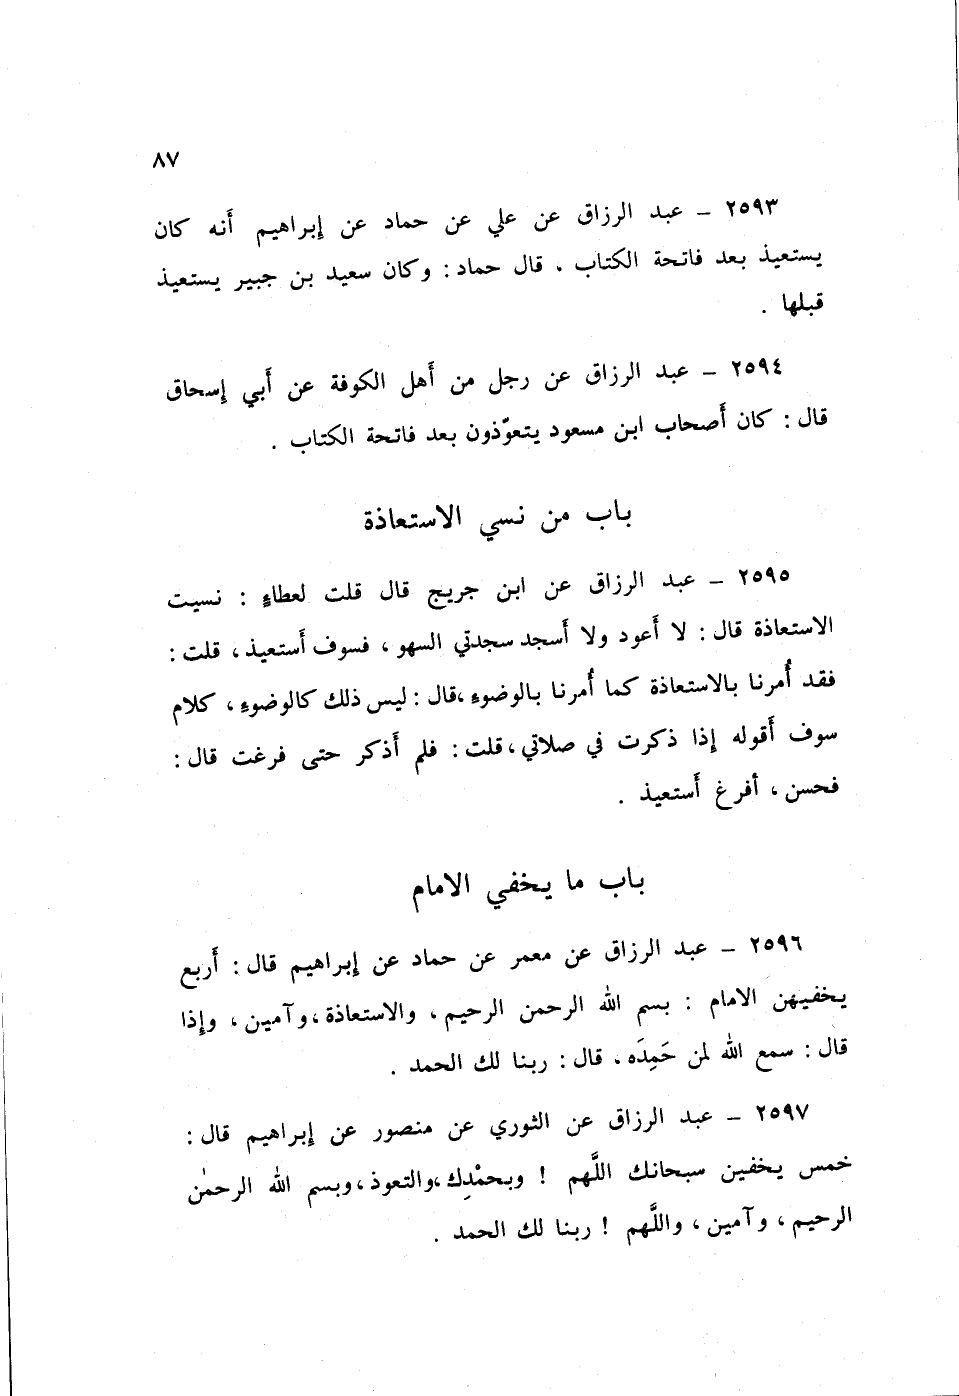 ٨٧
٢٥٩٣ – عبد الرزاق عن علي عن حماد عن إبراهيم أنه كان
يستعيذ بعد فاتحة الكتاب ، قال حماد : وكان سعيد بن جبير يستعيذ
قبلها .
٢٥٩٤ – عبد الرزاق عن رجل من أهل الكوفة عن أبي إسحاق
قال : كان أصحاب ابن مسعود يتعوّذون بعد فاتحة الكتاب .
باب من نسي الاستعاذة
٢٥٩٥ – عبد الرزاق عن ابن جريج قال قلت لعطاءٍ : نسيت
الاستعاذة قال : لا أعود ولا أسجد سجدتي السهو ، فسوف أستعيذ ، قلت :
فقد أُمرنا بالاستعاذة كما أُمرنا بالوضوءِ ،قال : ليس ذلك كالوضوءِ ، كلام
سوف أقوله إذا ذكرت في صلاتي ، قلت : فلم أذكر حتى فرغت قال :
فحسن ، أفرغ أستعيذ .
باب ما يخفي الامام
٢٥٩٦ – عبد الرزاق عن معمر عن حماد عن إبراهيم قال : أربع
يخفيهن الامام : بسم الله الرحمن الرحيم ، والاستعاذة ، وآمين ، وإذا
قال : سمع الله لمن حَمِدَه ، قال : ربنا لك الحمد .
٢٥٩٧ – عبد الرزاق عن الثوري عن منصور عن إبراهيم قال :
خمس يخفين سبحانك اللَّهم ! وبحمْدِك ،والتعوذ ، وبسم الله الرحمٰن
الرحيم ، وآمين ، واللَّهم ! ربنا لك الحمد .